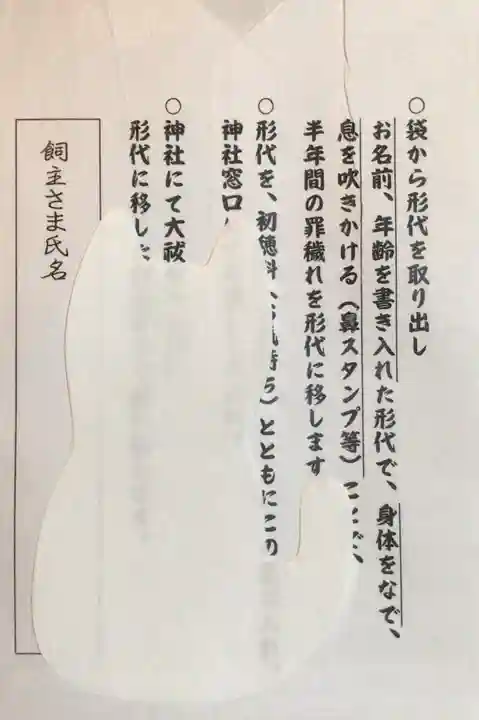 ○袋から形代を取り出し
お名前、年齢を書き入れた形代で、身体をなで、
息を吹きかける(鼻スタンプ等)ことで、
半年間の罪穢れを形代に移します
○形代を、初穂料(お気持ち)とともにこの
神社窓口
○神社にて大祓
形代に移した
飼主さま氏名